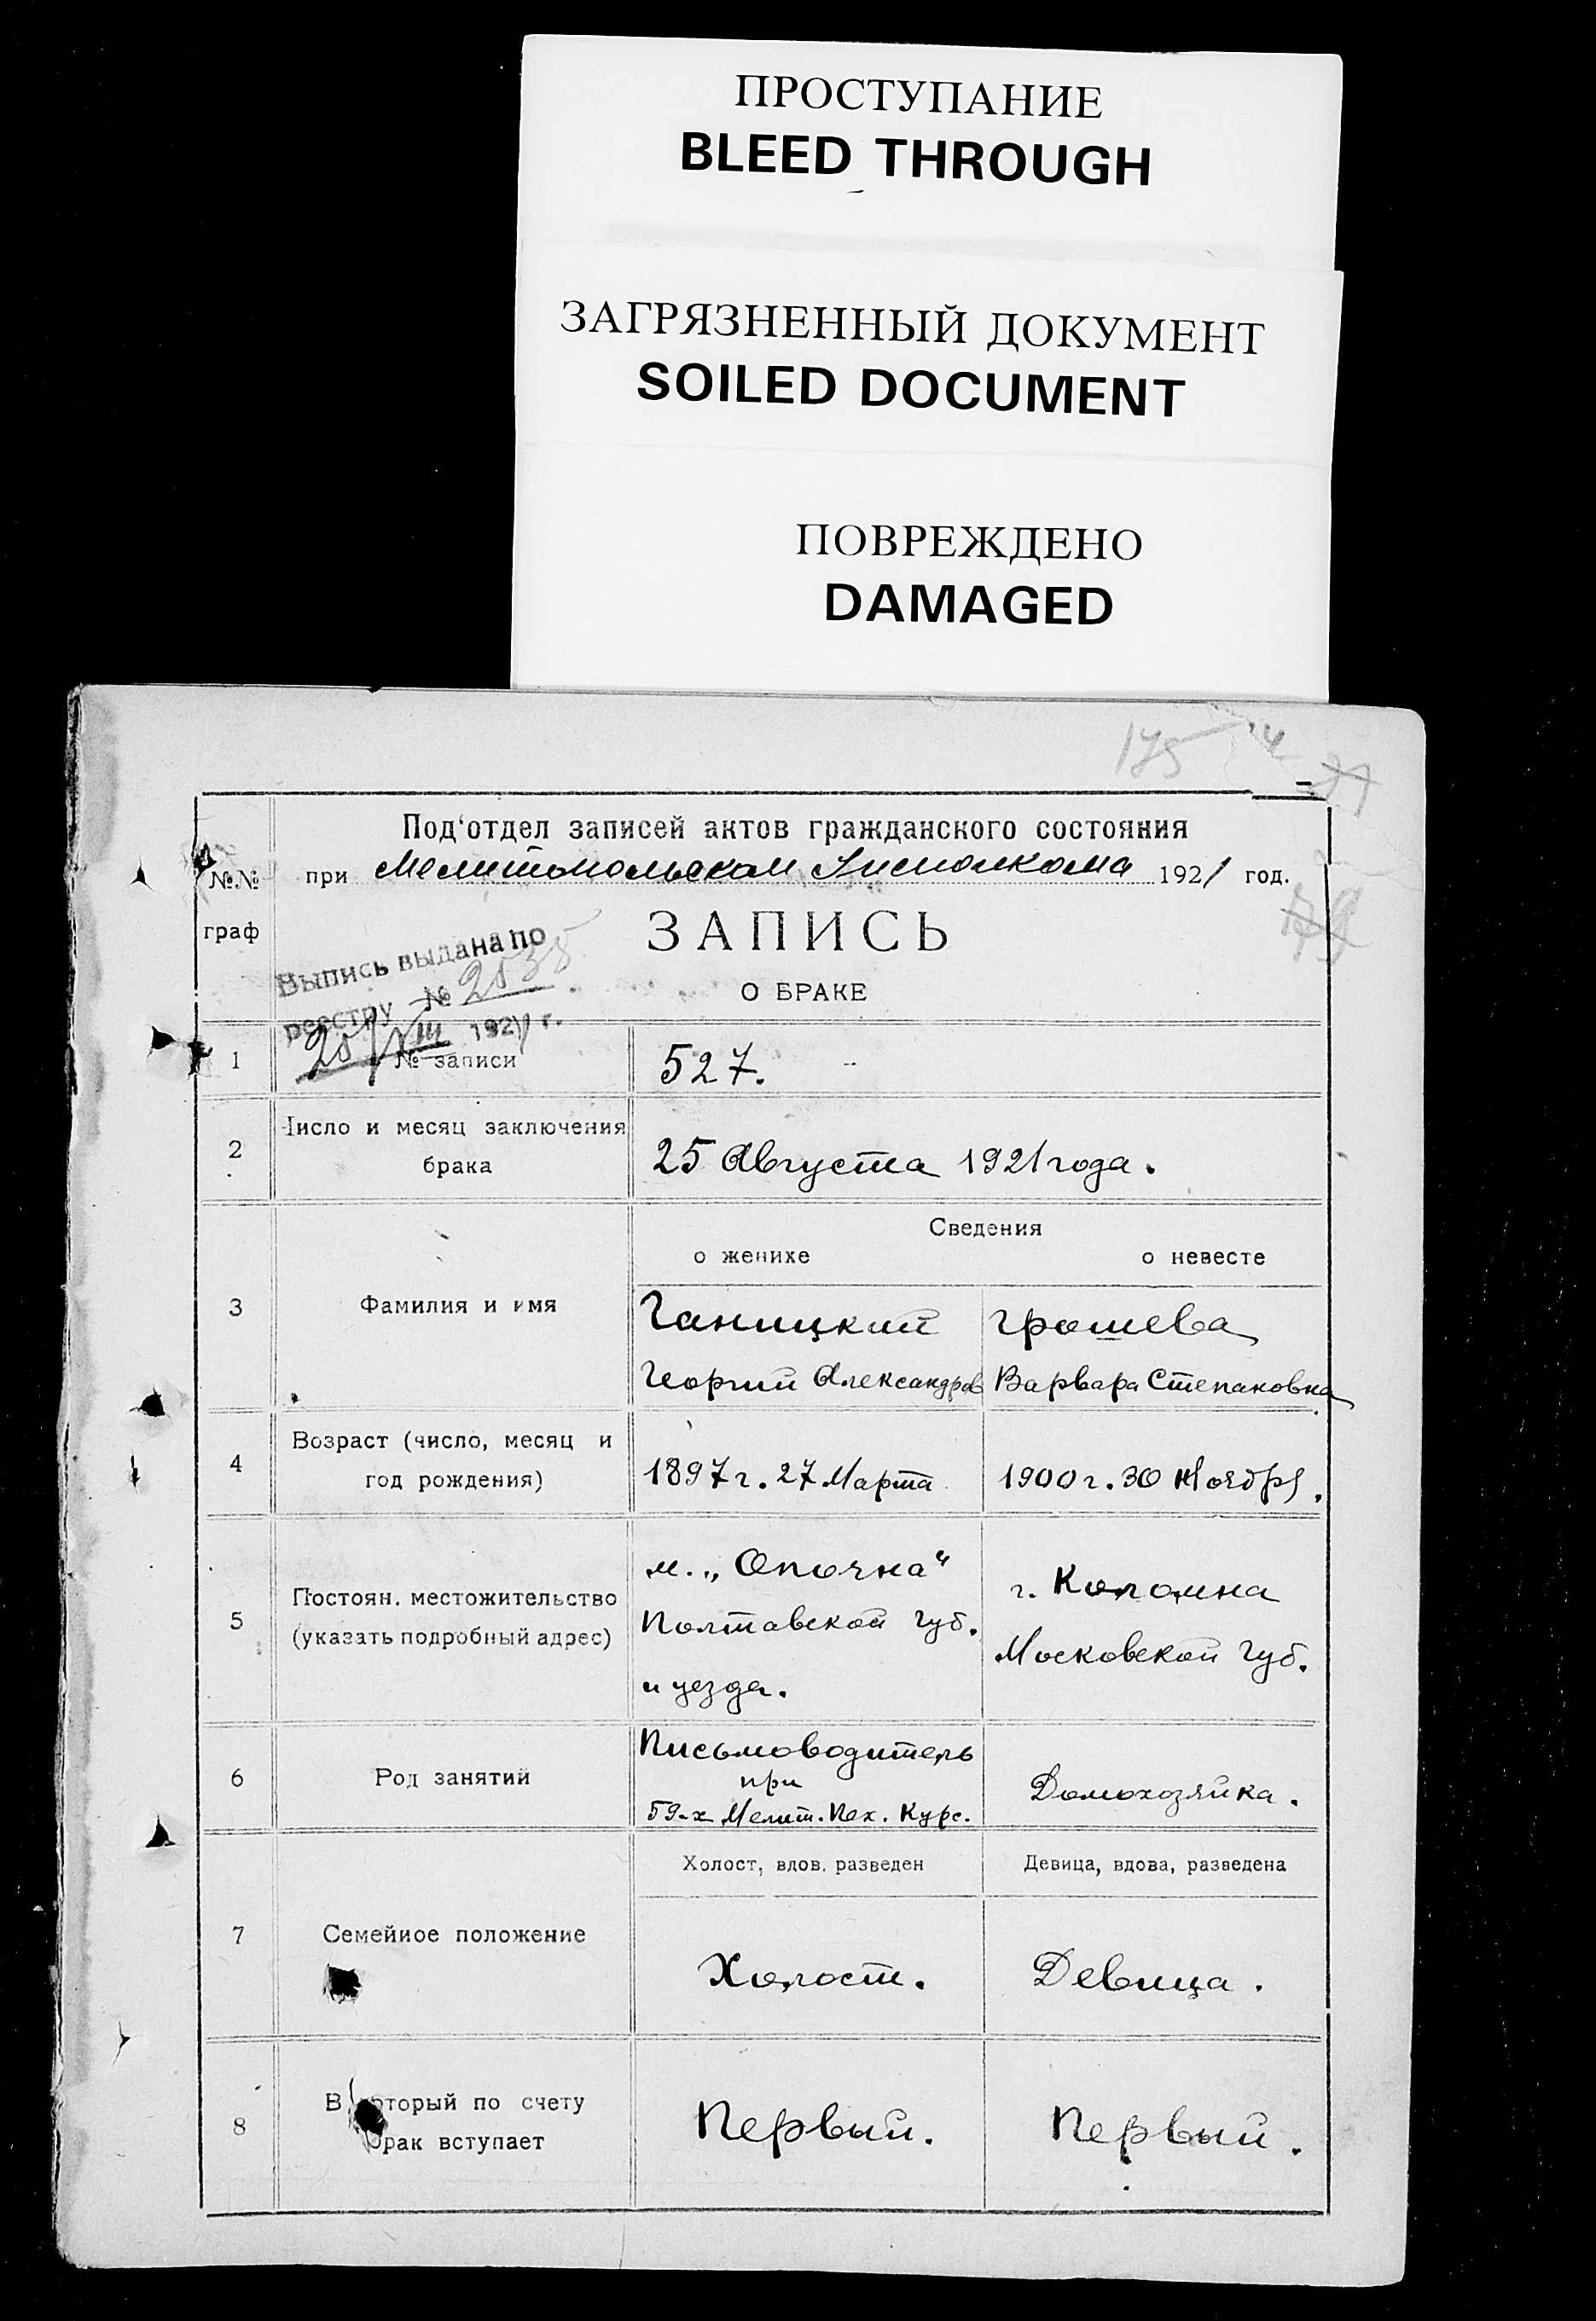 ПРОСТУПАНИЕ
BLEED THROUGH
ЗАГРЯЗНЕННЫЙ ДОКУМЕНТ
SOILED DOCUMENT
ПОВРЕЖДЕНО
DAMAGED
175
Под'отдел записей актов гражданского состояния
№№ граф
при Мелитопольском Исполкома 1921 год.
ЗАПИСЬ
О БРАКЕ
Выпись выдана по
реестру № 2535
25/VIII 1921 г.
1 № записи 527.
2 Число и месяц заключения
брака
25 Августа 1921 года.
Сведения
о женихе о невесте
3 Фамилия и имя
Ганицкий Грошева
Георгий Александров Варвара Степановна
4 Возраст (число, месяц и
год рождения)
1897 г. 27 Марта 1900 г. 30 Ноября.
5 Постоян. местожительство
(указать подробный адрес)
м. „Опочна“
Полтавской Губ.
и уезда.
г. Коломна
Московской Губ.
6 Род занятий
Письмоводитель
при
59-х Мелит. Пех. Курс.
Домохозяйка.
Холост, вдов, разведен Девица, вдова, разведена
7 Семейное положение
Холост. Девица.
8 В который по счету
брак вступает
Первый. Первый.